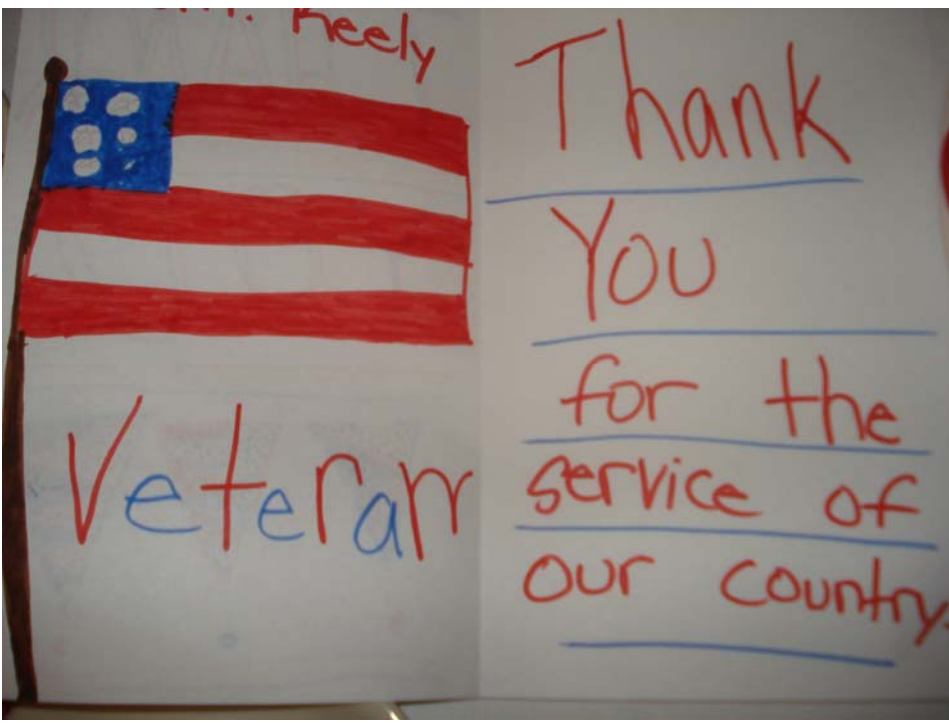 Keely
Veteran
Thank
You
for the
service of
our country.